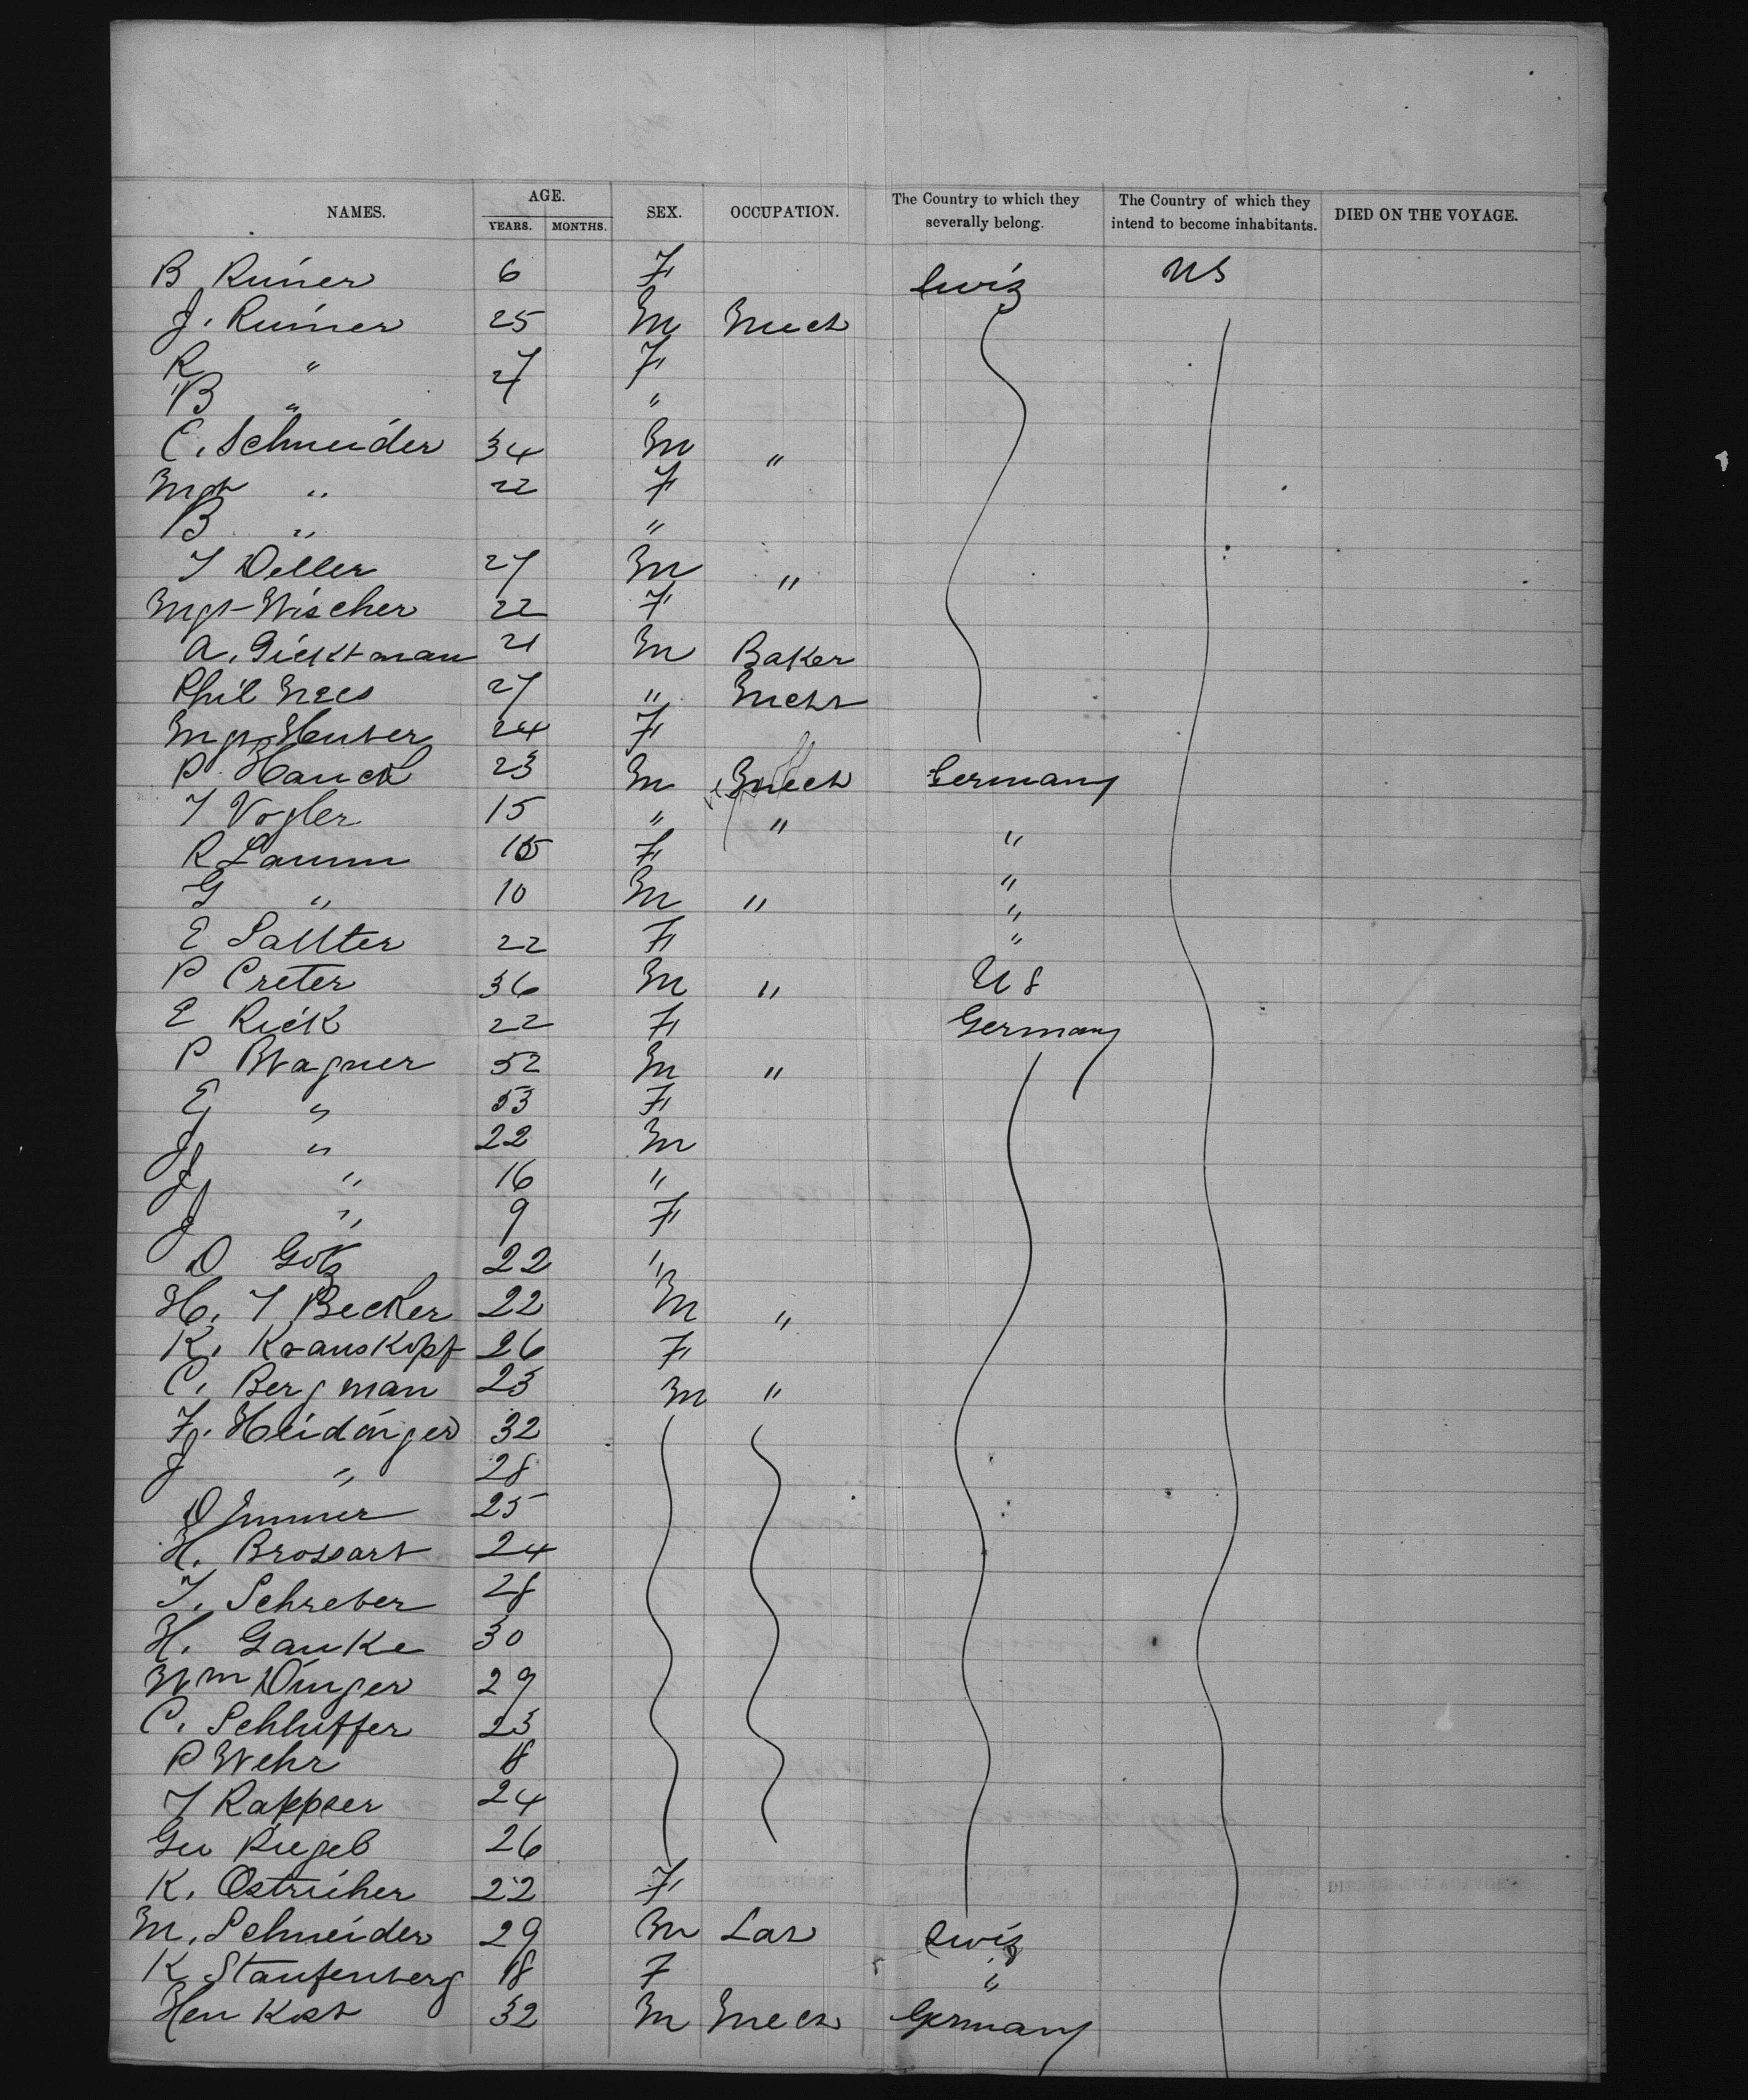 NAMES. AGE. YEARS. MONTHS. SEX. OCCUPATION. The Country to which they severally belong. The Country of which they intend to become inhabitants. DIED ON THE VOYAGE.
B Ruiner 6 F Swiz US
J. Ruiner 25 M Mech
R " 27 F
B " "
C. Schneider 34 M "
Mgt " 22 F
B " "
J Deller 27 M "
Mgt Wischer 22 F
A. Dicktman 21 M Baker
Phil Nees 27 " Mech
Mgt Huber 24 F
P Hauck 23 M Mech Germany
J Vogler 15 " " "
R Laumm F "
G " 10 M " "
E Sallter 22 F "
P Creter 36 M " US
E Rick 22 F Germany
P Wagner 52 M "
E " 53 F
J " 22 M
J " 16 "
J " 9 F
D Gotz 22 "
H. J Becker 22 M "
K. Krauskopf 26 F
C. Bergman 23 M "
F. Heidinger 32
J " 28
D Immer 25
H. Brossart 24
J. Schreber 28
H. Ganke 30
Wm Dinger 29
C. Schluffer 23
P Wehr 18
J Rappser 24
Geo Riegel 26
K. Ostricher 22 F
M. Schneider 29 M Lab Swiz
K Staufenberg 18 F "
Hen Kost 32 M Mech Germany